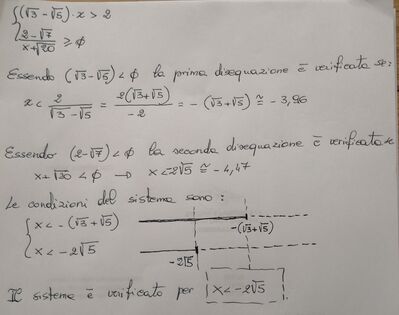 {(√3 - √5) · x > 2
{(2-√7)/(x+√20) ≥ ϕ
Essendo (√3-√5) < ϕ la prima disequazione ē verificata se:
x < 2/(√3-√5) = 2(√3+√5)/-2 = - (√3+√5) ≅ - 3,96
Essendo (2-√7) < ϕ la seconda disequazione ē verificata se
x+√20 < ϕ → x < -2√5 ≅ - 4,47
Le condizioni del sistema sono:
{x < - (√3+√5)
-(√3+√5)
{x < -2√5
-2√5
Il sistema ē verificato per x < -2√5.